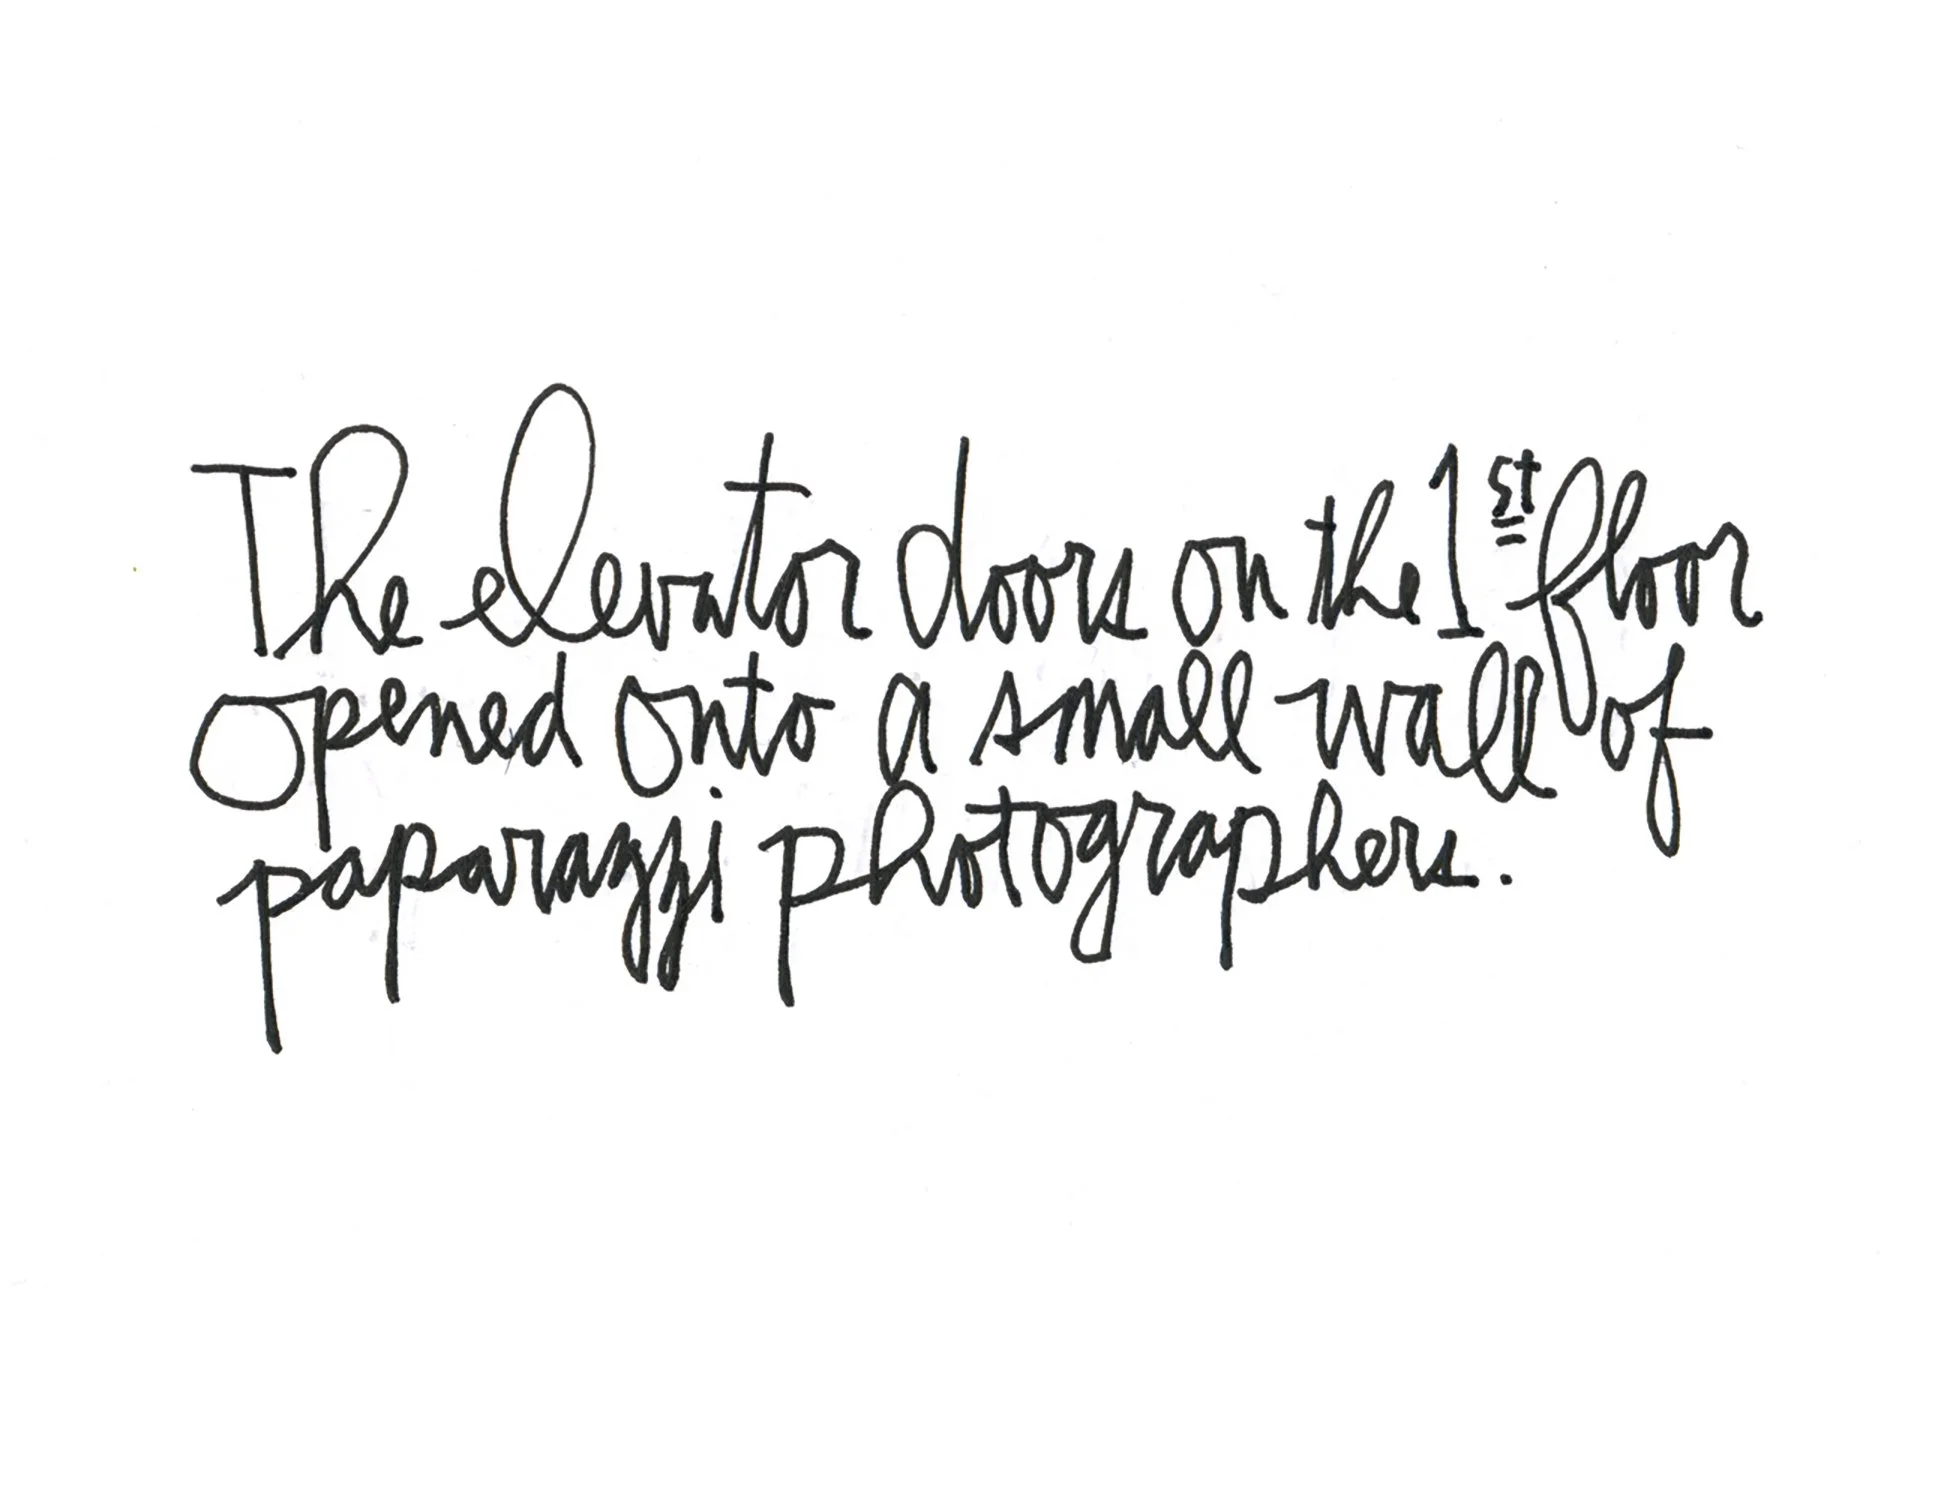 The elevator doors on the 1st floor
opened onto a small wall of
paparazzi photographers.